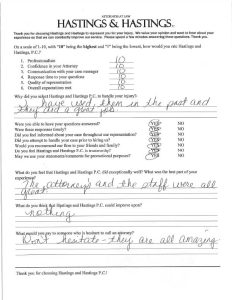 ATTORNEYS AT LAW
HASTINGS & HASTINGS.
Thank you for choosing Hastings and Hastings to represent you for your injury. We value your opinion and want to hear about your
experience so that we can constantly improve our service. Please spend a few minutes answering these questions. Thank you.
On a scale of 1-10, with "10" being the highest and "1" being the lowest, how would you rate Hastings and
Hastings, P.C.?
1. Professionalism 10
2. Confidence in your Attorney 10
3. Communication with your case manager 10
4. Response time to your questions 10
5. Quality of representation 10
6. Overall expectations met 10
Why did you select Hastings and Hastings P.C. to handle your injury?
have used them in the past and
they did a great job
Were you able to have your questions answered? YES NO
Were those responses timely? YES NO
Did you feel informed about your case throughout our representation? YES NO
Did you attempt to handle your case prior to hiring us? YES NO
Would you recommend our firm to your friends and family? YES NO
Do you feel Hastings and Hastings P.C. is trustworthy? YES NO
May we use your statements/comments for promotional purposes? YES NO
What do you feel that Hastings and Hastings P.C. did exceptionally well? What was the best part of your
experience?
The attorneys and the staff were all
great
What do you think that Hastings and Hastings P.C. could improve upon?
nothing
What would you say to someone who is hesitant to call an attorney?
Don't hesitate - they are all amazing
Thank you for choosing Hastings and Hastings P.C.!